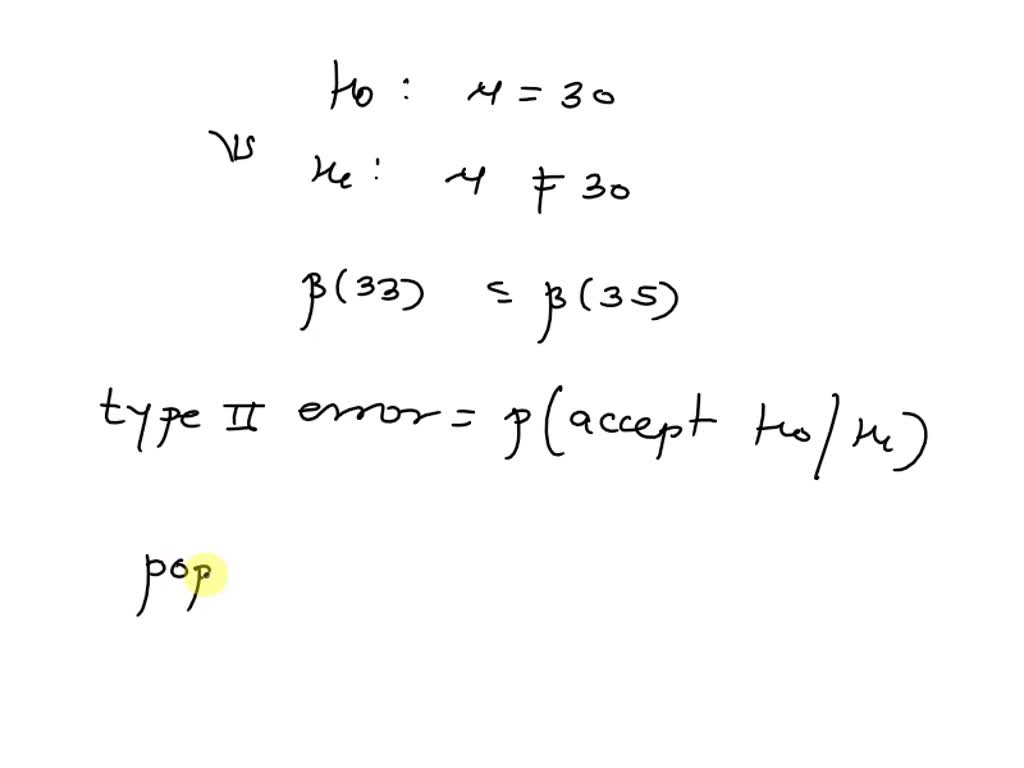 H0 : μ = 30
Vs
H1 : μ ≠ 30
β(33) = β(35)
type II error = p(accept H0/H1)
pop